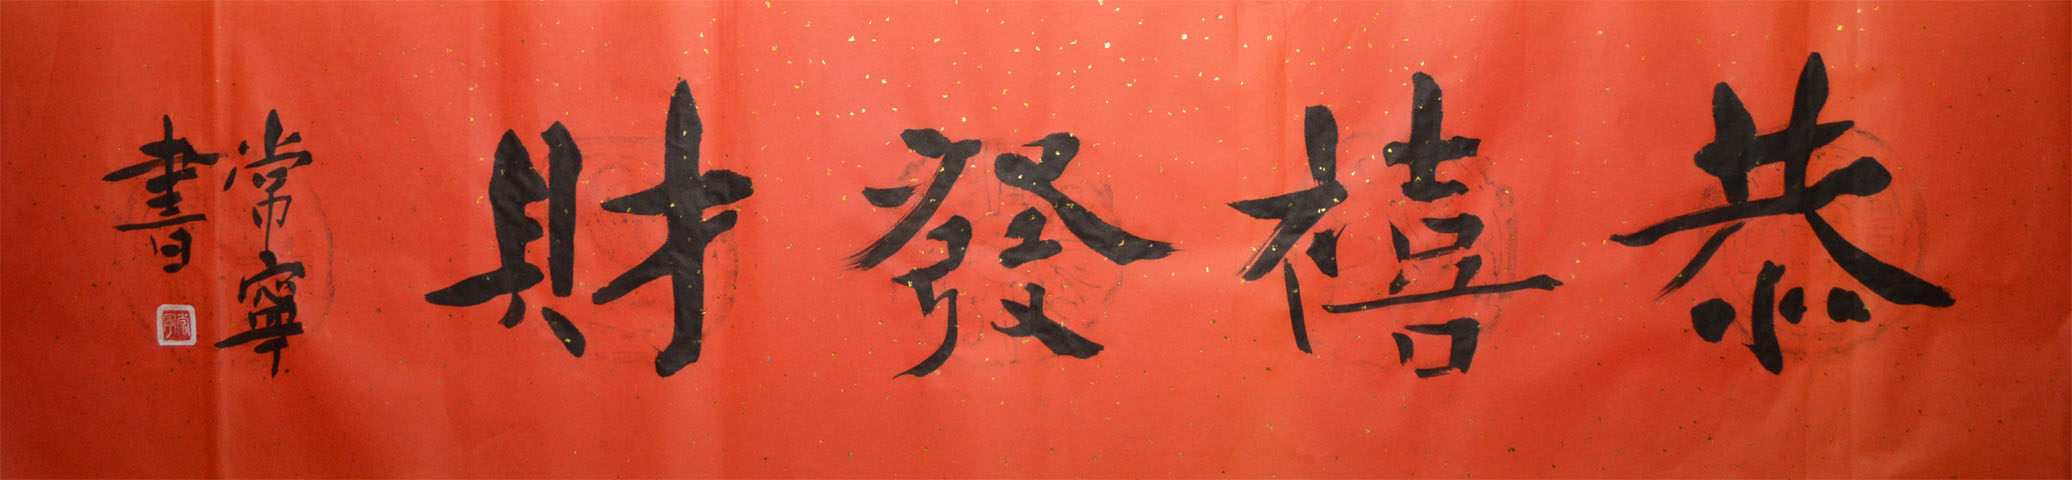 恭禧發財
常寧
書